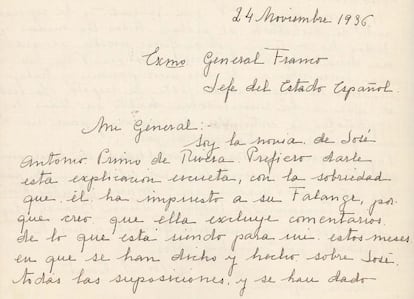 24 Noviembre 1936.
Exmo General Franco
Jefe del Estado Español.
Mi General:
Soy la novia de José
Antonio Primo de Rivera. Prefiero darle
esta explicacion escueta, con la sobriedad
que él ha impuesto a su Falange, por-
que creo que ella excluye comentarios
de lo que está siendo para mi estos meses
en que se han dicho y hecho sobre José
todas las suposiciones, y se han dado